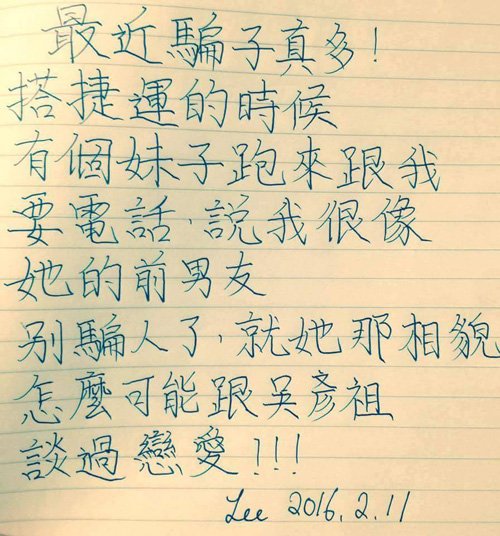 最近騙子真多!
搭捷運的時候
有個妹子跑來跟我
要電話,說我很像
她的前男友
別騙人了,就她那相貌
怎麼可能跟吳彥祖
談過戀愛!!!
Lee 2016.2.11